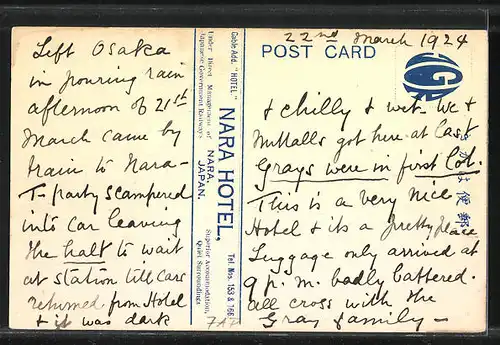 22nd March 1924
POST CARD
Left Osaka
in pouring rain
afternoon of 21st
March came by
train to Nara-
T- party scampered
into car leaving
the halt to wait
at station till cars
returned from Hotel
& it was dark
Cable Add. "HOTEL"
NARA HOTEL,
Tel. Nos. 153 & 166
NARA,
JAPAN.
Under Direct Management of
Japanese Government Railways
Superior Accommodation,
Quiet Surroundings
& chilly & wet- We &
Nuttalls got here at last
Grays were in first lot.
This is a very nice
Hotel & its a pretty place
Luggage only arrived at
9 p.m. badly battered.
all cross with the
Gray family-
きがは便郵